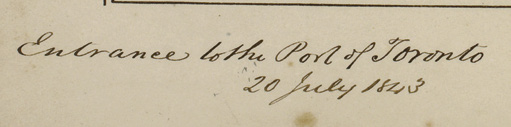 Entrance to the Port of Toronto
20 July 1843